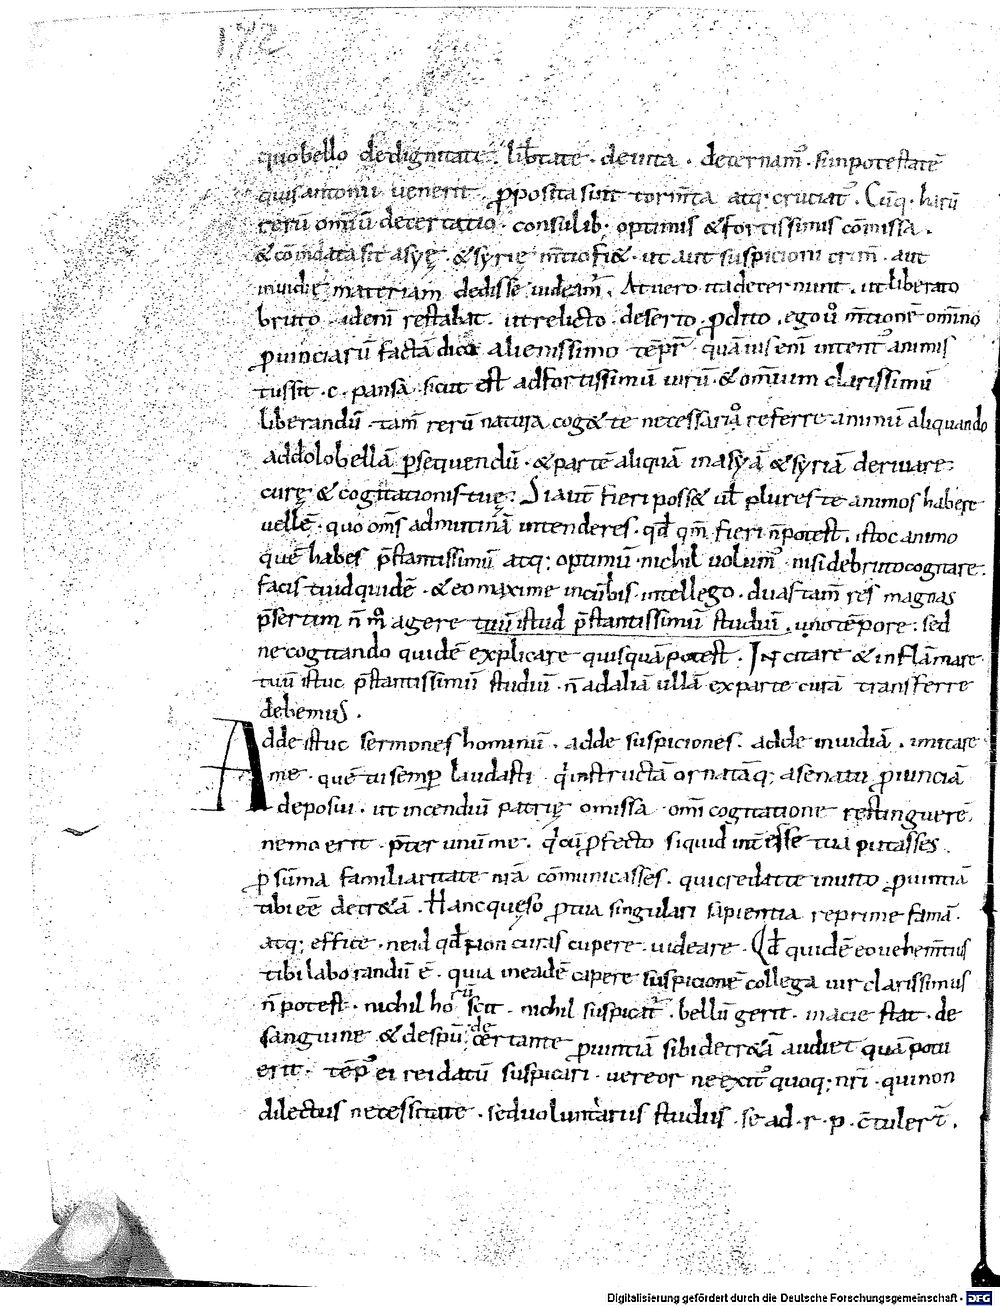 172
quo bello de dignitate · lib̄tate · de uita · decernam̄ · si in potestatē
quis antonii uenerit · p̱posita sint torm̄ta atq; cruciat᷒ · Cūq; harū
rerū omīū decertatio · consulib; optimis & fortissimis cōmissa ·
& cōmdata sit asyę · & syrię m̄tio fi& · ut aut suspicioni crim̄ · aut
inuidię materiam dedisse uideam̄ · At uero ita decernunt · ut liberato
bruto · idem restabat · ut relicto · deserto · p̱dito · ego ū m̄tionē omīno
p̱uinciarū factā dico alienissimo tēpī · quāuis eni intent᷒ animis
iussit · c · pansa · sicut est ad fortissimū uirū · & omīum clarissimū
liberandū · tam̄ rerū natura cog& te necessario referre animū aliquando
ad dolobellā p̱sequendū · & partē aliquā in asyā & syriā deriuare
curę & cogitationis tuę · Si aut̄ fieri poss& ul̄ plures te animos habere
uellē · quo om̄s ad mutinā intenderes · qd̄ qm̄ fieri n̄ potest · istoc animo
quē habes p̄stantissimū atq; optimū · nichil uolum᷒ · nisi de bruto cogitare ·
facis tu id quidē · & eo maxime incūbis · intellego · duas tam̄ res magnas
p̄sertim n̄ m̊ agere tuū istud p̄stantissimū studiū · uno tēpore · sed
ne cogitando quidē explicare quisquā potest · Incitare & inflāmare
tuū istuc p̄stantissimū studiū · n̄ ad aliā ullā ex parte curā transferre
debemus ·
Adde istuc sermones hominū · adde suspiciones · adde inuidiā · imitare
me · quē tu semp̱ laudasti · q̇ instructā ornatāq; a senatu p̱uinciā
deposui · ut incendiū patrię omissa om̄i cogitatione restinguerē ·
nemo erit · p̄ter unū me · q̇cū p̱fecto siquid int̄esse tua putasses ·
p̱ sūma familiaritate nr̄a cōmunicasses · qui credat te inuito p̱uintiā
tibi eē decr&ā · Hanc queso p̱ tua singulari sapientia reprime famā ·
atq; effice · ne id qd̄ non curas cupere · uideare · Qd̄ quidē eo uehem̄tius
tibi laborandū ē · quia in eadē capere suspicionē collega uir clarissimus
n̄ potest · nichil horū scit · nichil suspicat᷒ · bellū gerit · in acie stat · de
sanguine & de spū decertante p̱uintiā sibi decr&ā audiet quā potu
erit · tēp᷒ ei rei datū suspicari · uereor ne exit᷒ quoq; nr̄i · qui non
dilectus necessitate · sed uoluntariis studiis · se ad · r · p · c̄tulert̄ ·
Digitalisierung gefördert durch die Deutsche Forschungsgemeinschaft · DFG